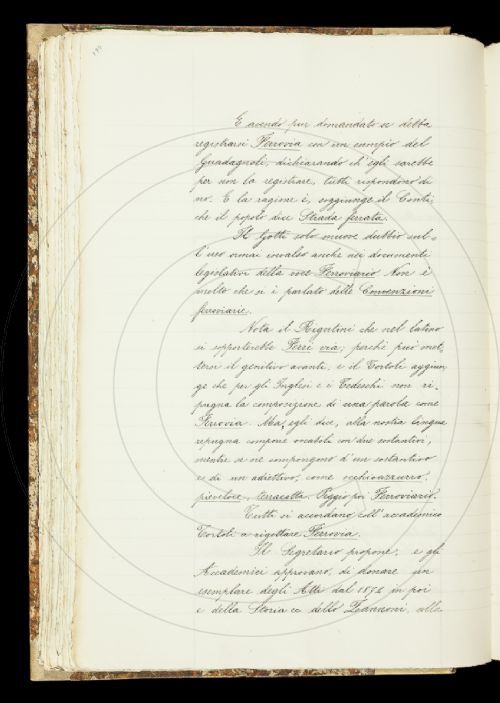 E avendo pur domandato se debba
registrarsi Ferrovia con un esempio del
Guadagnoli, dichiarando ch'egli sarebbe
per non la registrare, tutti rispondono di
no. E la ragione è, soggiunge il Conti,
che il popolo dice Strada ferrata.
Il Gotti solo muove dubbio sul-
l'uso ormai invalso anche nei documenti
legislativi della voce Ferroviario. Non è
molto che si è parlato delle Convenzioni
ferroviarie.
Nota il Rigutini che nel latino
si sopporterebbe Ferri via; perchè può met-
tersi il genitivo avanti, e il Tortoli aggiun-
ge che per gli Inglesi e i Tedeschi non ri-
pugna la composizione di una parola come
Ferrovia. Ma, egli dice, alla nostra lingua
repugna comporre vocaboli con due sostantivi,
mentre se ne compongono d'un sostantivo
e di un adiettivo, come occhioazzurro,
pieveloce, terracotta. Peggio poi Ferroviario.
Tutti si accordano coll'accademico
Tortoli a rigettare Ferrovia.
Il Segretario propone, e gli
Accademici approvano, di donare un
esemplare degli Atti dal 1872 in poi
e della Storia ec. dello Zannoni, alla